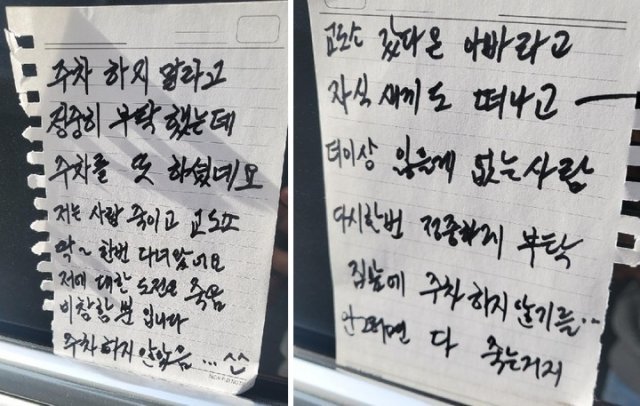 주차 하지 말라고
정중히 부탁 했는데
주차를 또 하셨네요
저는 사람 죽이고 교도소
딱~ 한번 다녀왔네요
저에 대한 도전은 죽음
비참할 뿐 입니다
주차 하지 안았음 ... ^^
교도소 갔다온 아빠라고
자식 새끼도 떠나고
더이상 잃을게 없는사람
다시한번 정중하게 부탁
집앞에 주차 하지 않기를..
안그러면 다 죽는거지